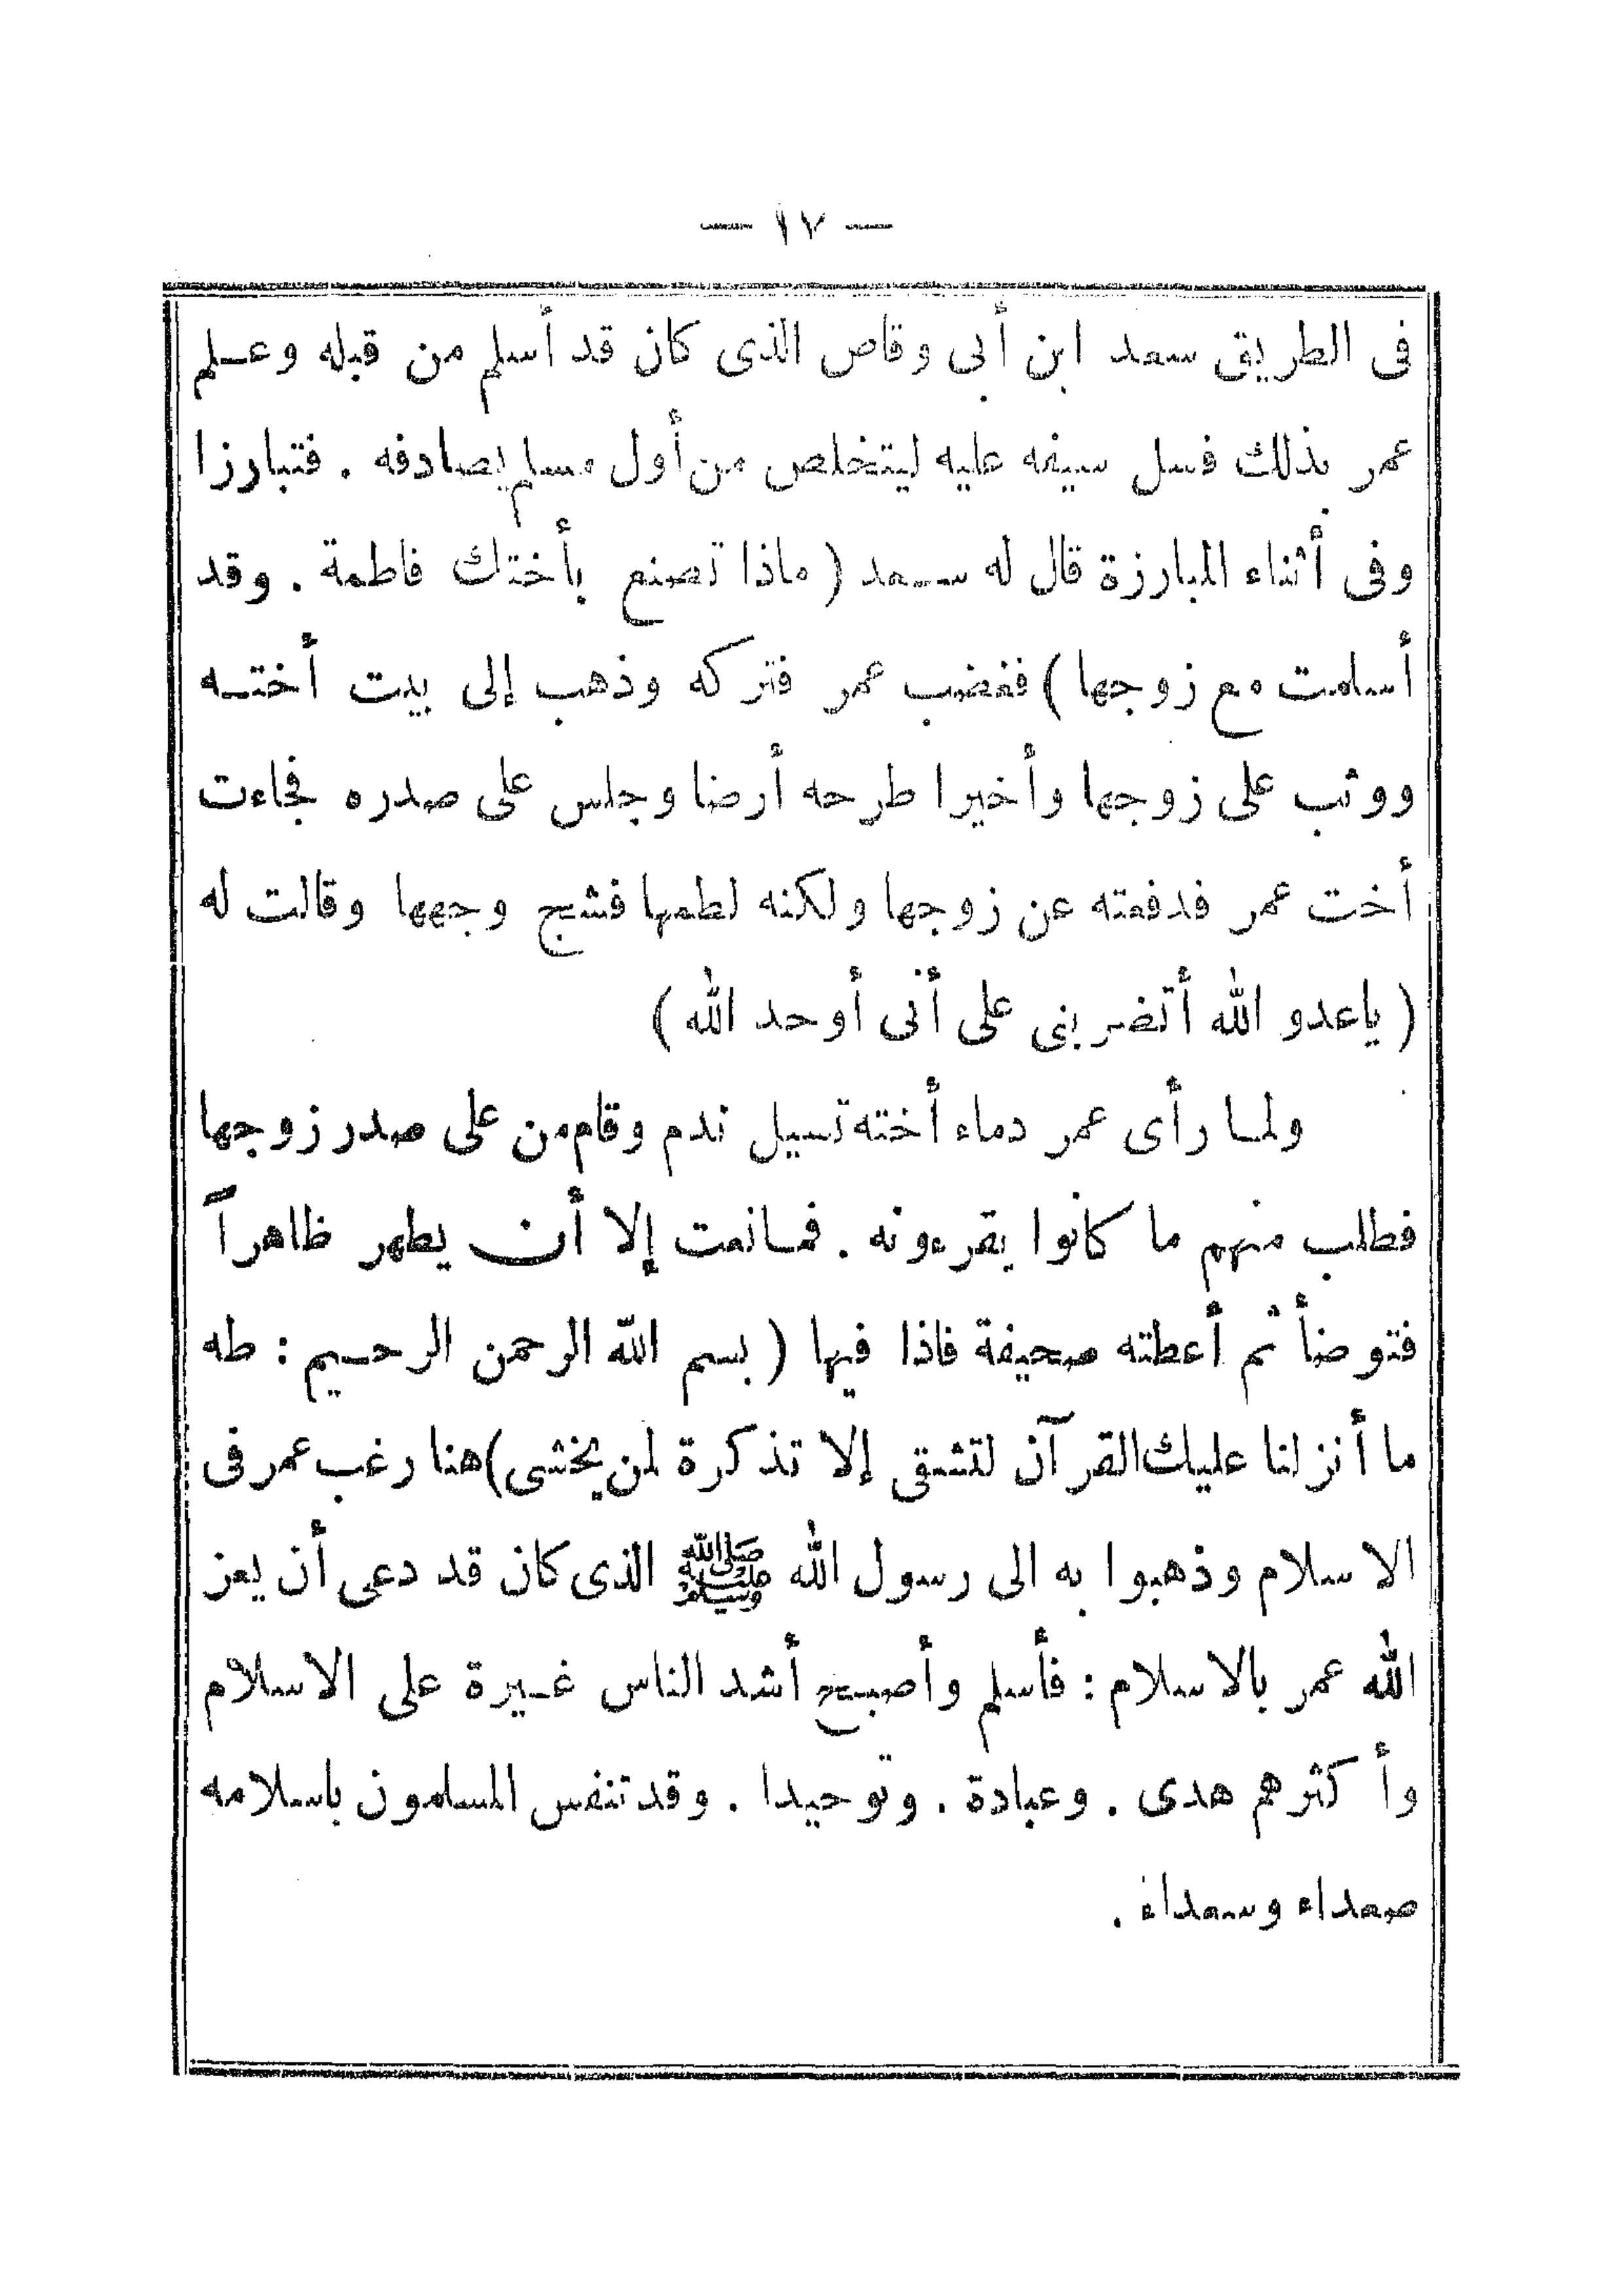 — ١٧ —
فى الطريق سعد ابن أبى وقاص الذى كان قد أسلم من قبله وعلم
عمر بذلك فسل سيفه عليه ليتخلص من أول مسلم يصادفه . فتبارزا
وفى أثناء المبارزة قال له سعد ( ماذا تصنع بأختك فاطمة . وقد
أسلمت مع زوجها ) فغضب عمر فتركه وذهب إلى بيت أخته
ووثب على زوجها وأخيرا طرحه أرضا وجلس على صدره فجاءت
أخت عمر فدفعته عن زوجها ولكنه لطمها فشج وجهها وقالت له
( ياعدو الله أتضربنى على أنى أوحد الله )
ولما رأى عمر دماء أخته تسيل ندم وقام من على صدر زوجها
فطلب منهم ما كانوا يقرءونه . فمانعت إلا أن يطهر ظاهراً
فتوضأ ثم أعطته صحيفة فاذا فيها ( بسم الله الرحمن الرحيم : طه
ما أنزلنا عليك القرآن لتشقى إلا تذكرة لمن يخشى ) هنا رغب عمر فى
الاسلام وذهبوا به الى رسول الله ﷺ الذى كان قد دعى أن يعز
الله عمر بالاسلام : فأسلم وأصبح أشد الناس غيرة على الاسلام
وأكثرهم هدى . وعبادة . وتوحيدا . وقد تنفس المسلمون باسلامه
صعداء وسعداء .